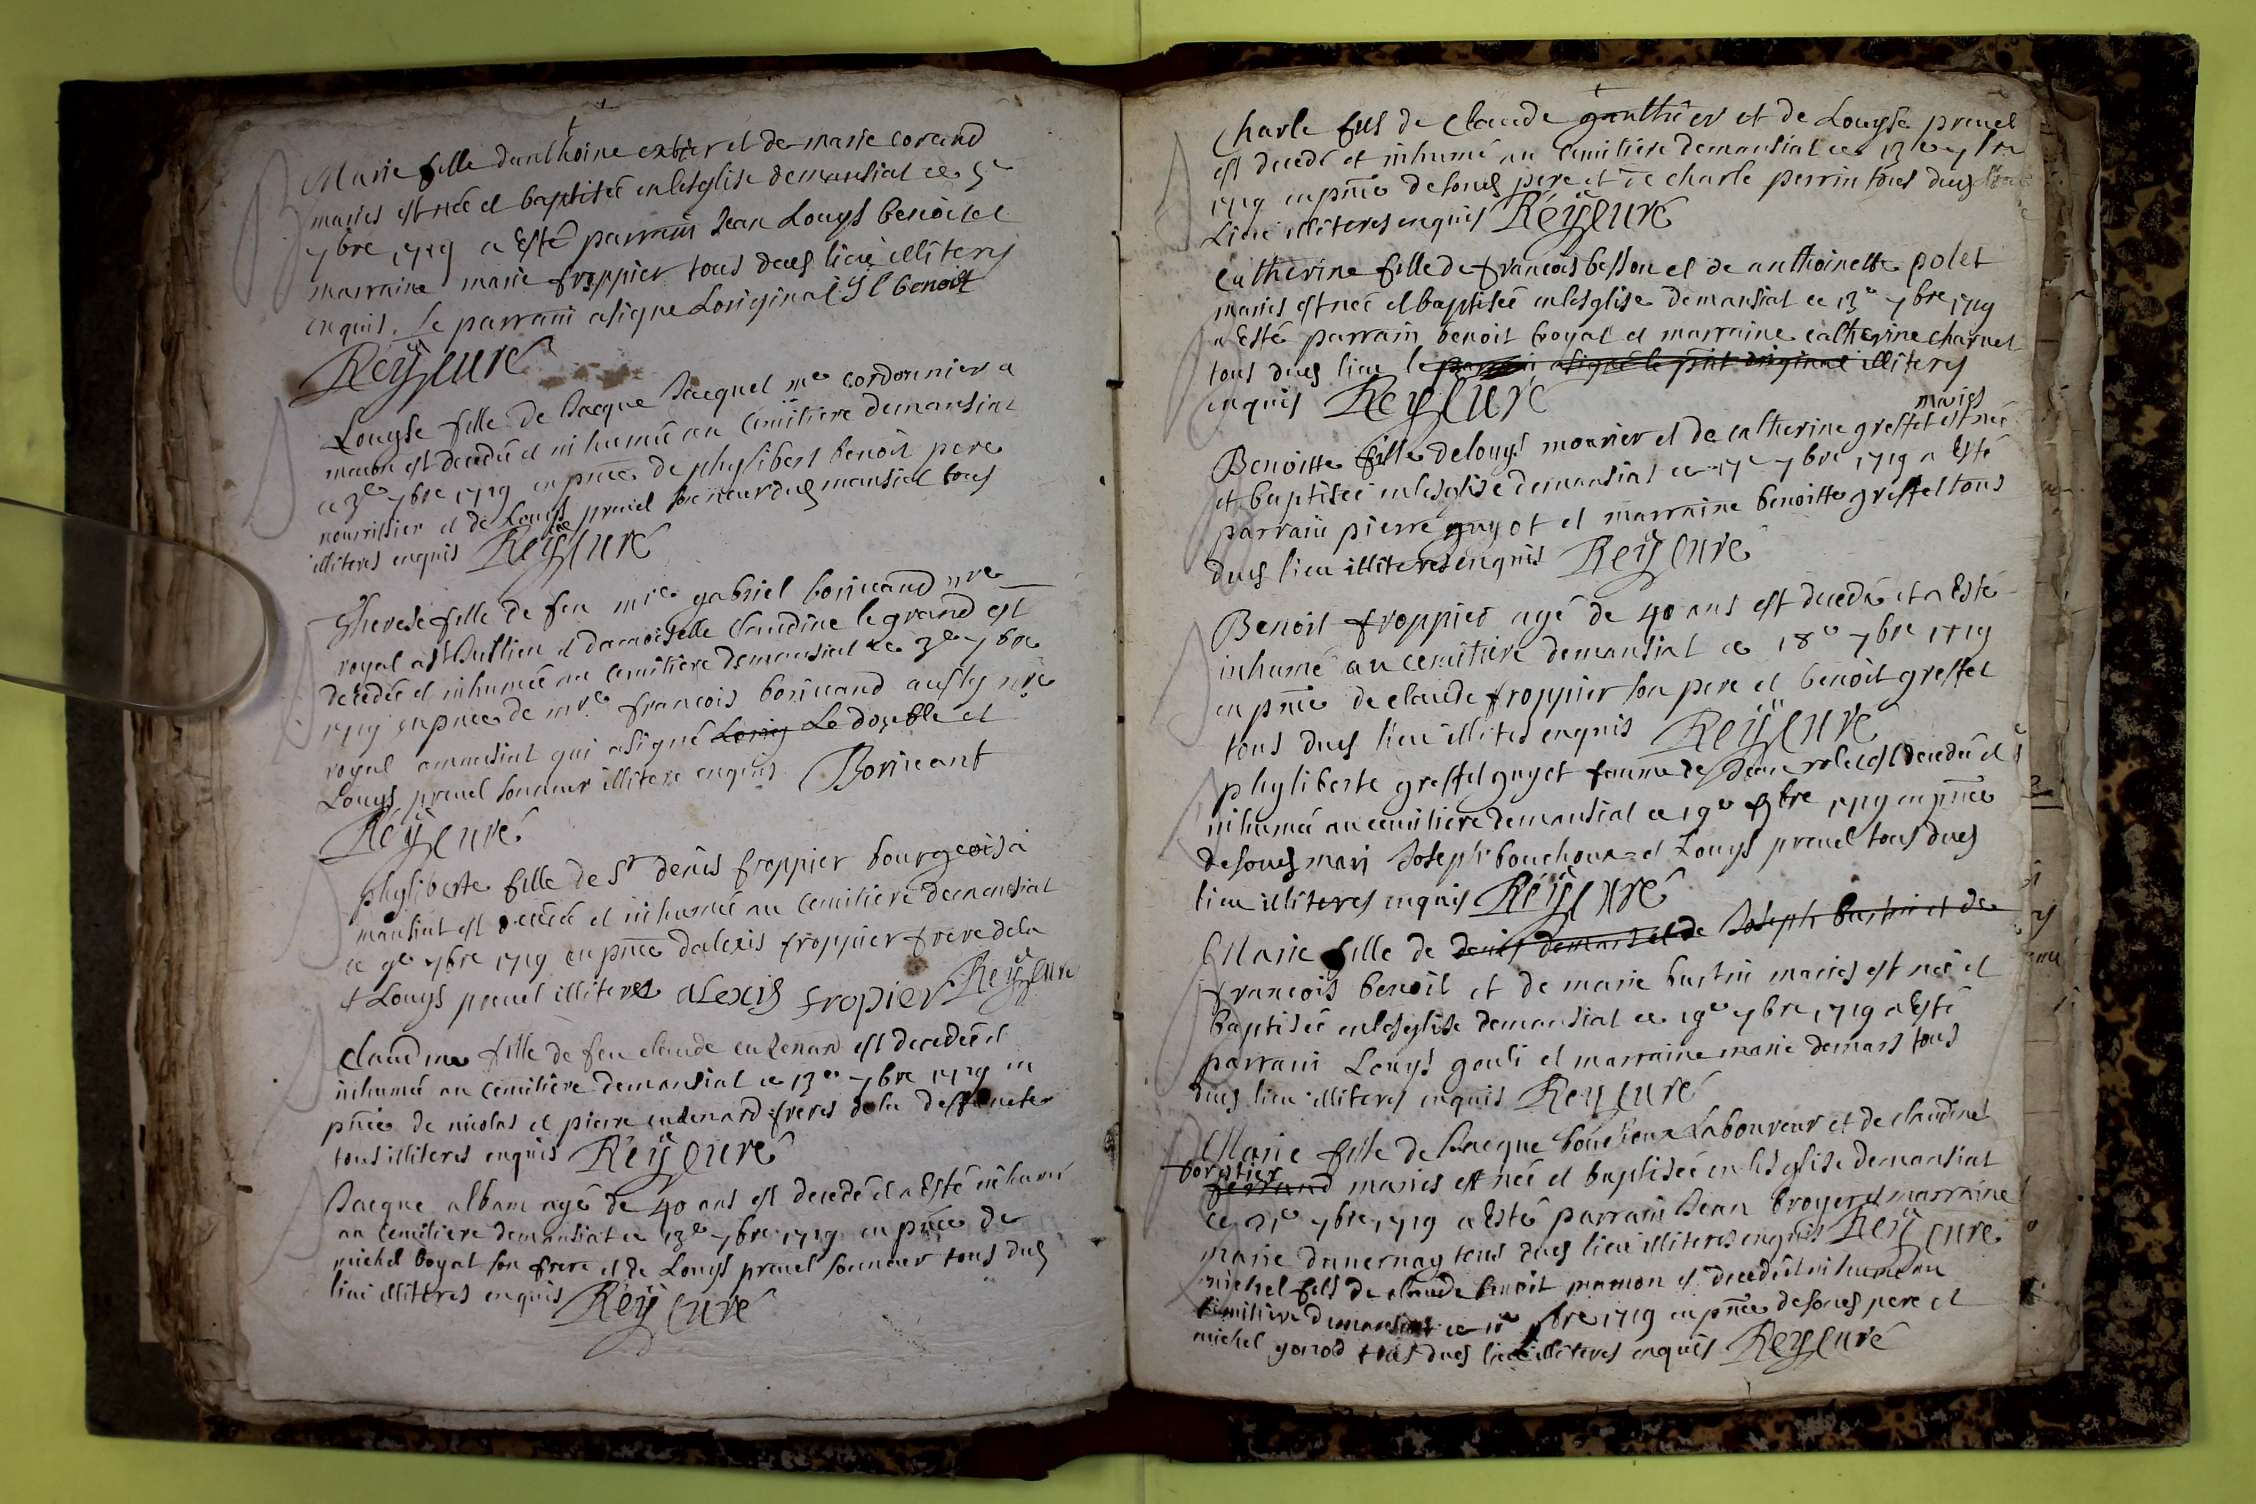 Marie fille danthoine et de marie corand
maries est née et baptisée en lesglise demansiat ce 5e
7bre 1719 a Esté parrain Jean Louys benoit et
marraine marie froppier tous dud lieu illiteres
enquis. Le parrain a signe Loriginal J l benoit
Reÿ curé
Louyse fille de Jacque Jacquet me cordonnier a
macon est decedée et inhumée au cemitiere demansiat
ce 3e 7bre 1719 en pnce de phylibert benoit pere
nourrissier et de Louys preuel sonneur dud mansiat tous
illiteres enquis Reÿ curé
Therese fille de feu mre gabriel borjuand nre
royal a st Jullien et damoiselle Claudine le grand est
decedée et inhumée au cemitiere demansiat ce 3e 7bre
1719 en pnce de mre francois borjuand aussy nre
royal a mansiat qui a signé Lorig Le double et
Louys preuel sonneur illitere enquis Borjuant
Reÿ curé
phyliberte fille de Sr denis froppier bourgeois a
mansiat est decedée et inhumée au cemitiere demansiat
ce 9e 7bre 1719 en pnce dalexis froppier frere dela
et Louys preuel illiteres alexis fropier Reÿ curé
Claudine fille de feu claude est decedée et
inhumée au cemitiere demansiat ce 13e 7bre 1719 en
pnce de nicolas et pierre freres de la deffuncte
tous illiteres enquis Reÿ curé
Jacque alban agé de 40 ans est decedé et a Esté inhumé
au cemitiere demansiat ce 13e 7bre 1719 en pnce de
michel boyat son frere et de Louys preuel sonneur tous dud
lieu illiteres enquis Reÿ curé
Charle fils de Claude gauthier et de Louyse preuel
est decedé et inhumé au cemitiere demansiat ce 13e 7bre
1719 en pnce de soud pere et de charle perrin tous dud
Lieu illiteres enquis Reÿ curé
Catherine fille de francois besson et de anthoinette polet
maries est née et baptisée en lesglise demansiat ce 13e 7bre 1719
a Esté parrain benoit boyat et marraine catherine charuet
tous dud lieu le parrain a signé le pnt original illiteres
enquis Reÿ curé
maries
Benoitte fille de louys mourier et de catherine greffet est née
et baptisée en lesglise demansiat ce 17e 7bre 1719 a Esté
parrain pierre guyot et marraine benoitte greffet tous
dud lieu illiteres enquis Reÿ curé
Benoit froppier agé de 40 ans est decedé et a Esté
inhumé au cemitiere demansiat ce 18e 7bre 1719
en pnce de claude froppier son pere et benoit greffet
tous dud lieu illiteres enquis Reÿ curé
phyliberte greffet guyot femme de est decedée et
inhumée au cemitiere demansiat ce 19e 7bre 1719 en pnce
de soud mari Joseph bouchoux et Louys preuel tous dud
lieu illiteres enquis Reÿ curé
Marie fille de denis demars et de Joseph burtin et de
francois benoit et de marie burtin maries est née et
baptisée en lesglise demansiat ce 19e 7bre 1719 a Esté
parrain Louys goli et marraine marie demars tous
dud lieu illiteres enquis Rey curé
Marie fille de Jacque bouchoux Laboureur et de claudine
forestier
ferrand maries est née et baptisée en lesglise demansiat
ce 21e 7bre 1719 a Esté parrain Jean broyer et marraine
marie dunernay tous dud lieu illiteres enquis Reÿ curé
michel fils de claude benoit mamon est decedé et inhumé au
cemitiere demansiat ce 7bre 1719 en pnce de soud pere et
michel gonod tous dud lieu illiteres enquis Reÿ curé